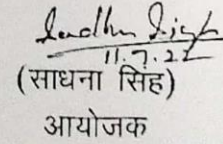 Sadhna Singh
11.7.22
(साधना सिंह)
आयोजक